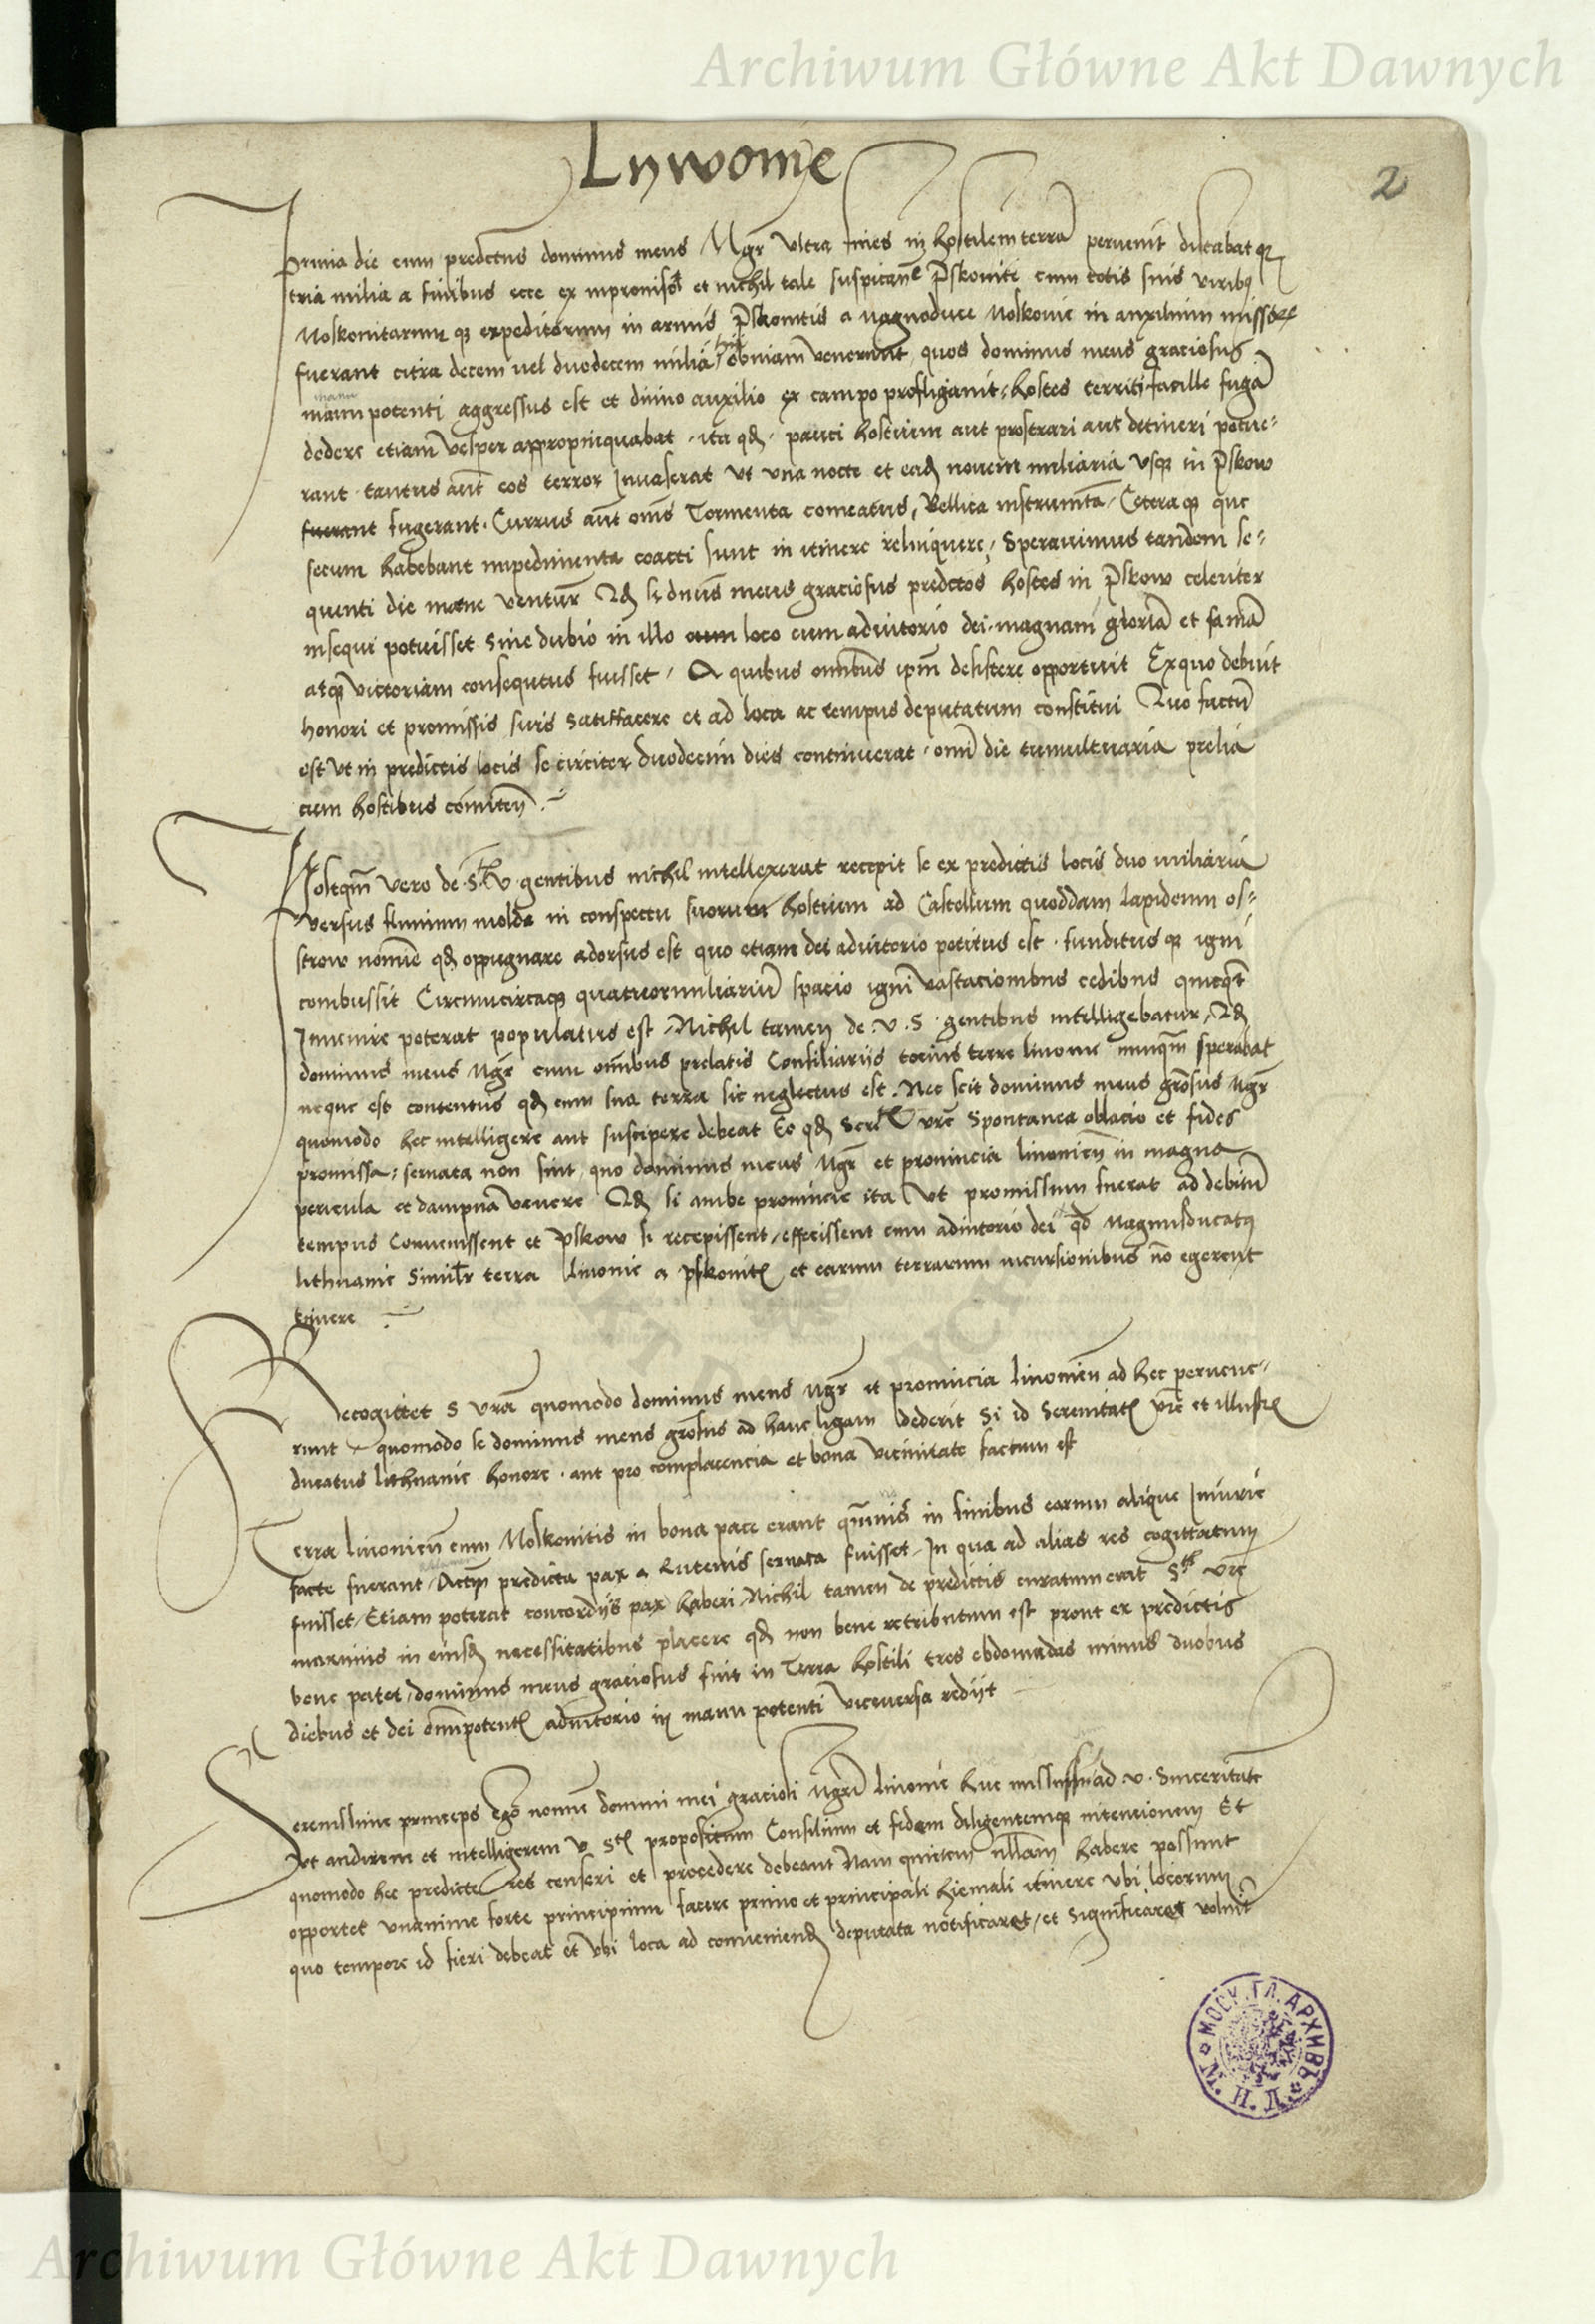 Archiwum Główne Akt Dawnych
Lywonie
2
Prima die cum predctus dominus meus Mgr ultra fines in hostilem terra pervenit ducabat qz
tria milia a finibus ecce ex improviso et nichil tale suspicante Pskovite cum totis suis viribus
Moskovitarum qz expeditorum in armis Pskovitis a Magnoduce Moskovie in auxilium miss
fuerant citra decem vel duodecem milia obviam venerunt quos dominus meus graciosus
manu potenti aggressus est et divino auxilio ex campo profligavit, hostes territi facille fuga
dedere etiam vesper appropinquabat ita qd pauci hostium aut prostrari aut detineri potue-
rant tantus aut eos terror Invaserat ut una nocte et ead novem miliaria usqz in Pskow
fuerant fugerant. Currus aut oms Tormenta comeatus, Bellica instrumta, Ceteraqz que
secum habebant impedimenta coacti sunt in itinere relinquere, Speravimus tandem se-
quenti die mane ventur Qd si dnus meus graciosus predctos hostes in Pskow celeriter
insequi potuisset Sine dubio in illo cum loco cum adiutorio dei magnam gloria et fama
atqz victoriam consequtus fuisset, A quibus omnibus ipm desistere opportuit Exquo debuit
honori et promissis suis Satiffacere et ad loca ac tempus deputatum constitui Quo factu
est ut in predictis locis se circiter duodecim dies continuerat omni die tumultuaria prelia
cum hostibus comitten
Postqm vero de S V gentibus nichil intellexerat recepit se ex predictis locis duo miliaria
versus flumium molda in conspectu suorum hostium ad Castellum quoddam lapideum os-
strow nomine qd oppugnare adorsus est quo etiam dei adiutorio potitus est funditus qz igni
combussit Circumcircaqz quatuor miliariu spacio igni vastacionibus cedibus quicqt
Invenire poterat populatus est, Nichil tamen de V. S. gentibus intelligebatur, Qd
dominus meus Mgr cum omibus prelatis Consiliariis tocius terre livonie nunqm sperabat
neque est contentus qd cum sua terra sic neglectus est. Nec scit dominus meus grosus Mgr
quomodo hec intelligere aut suscipere debeat Eo qd Sertis vre Spontanea oblacio et fides
promissa, servata non sint, quo dominus meus Mgr et provincia livonien in magna
pericula et dampna venere Qd si ambe provincie ita ut promissum fuerat ad debitu
tempus Convenissent et Pskow se recepissent, effecissent cum adiutorio dei qd Magnusducatus
lithuanie Similr terra livonie a pskovit et earum terrarum incursionibus no egerent
timere
Recogittet S vra quomodo dominus meus Mgr et provincia livonien ad hec pervene-
runt quomodo se dominus meus grosus ad hanc ligam dederit Si id Serenitatis vre et illustris
ducatus lithuanie honore aut pro complacencia et bona vicinitate factum est
Terra livonien cum Moskovitis in bona pace erant qmvis in finibus earum alique Iniurie
facte fuerant, Actm predicta pax a Rutenis servata fuisset, In qua ad alias res cogittatum
fuisset, Etiam poterat concordiis pax haberi, Nichil tamen de predictis curatum erat Stis vre
maximis in eiusd necessitatibus placere qd non bene retributum est prout ex predictis
bene patet, dominus meus graciosus fuit in Terra hostili tres ebdomadas minus duobus
diebus et dei omipotentis adiutorio in manu potenti viceversa rediit
Serenissime princeps Ego nomine domini mei graciosi Mgri livonie huc missus sum ad V. Sinceritate
ut audirem et intelligerem V Stis propositum Consilium et fidem diligentemqz intencionem Et
quomodo hec predicte res censeri et procedere debeant Nam quietem ullam habere possunt
opportet unanime forte principium facere primo et principali hiemali itinere ubi locorum
quo tempore id fieri debeat et ubi loca ad conveniend deputata notificaret, et significaret voluit
МОСК. ГЛ. АРХИВЪ М. И. Д.
Archiwum Główne Akt Dawnych